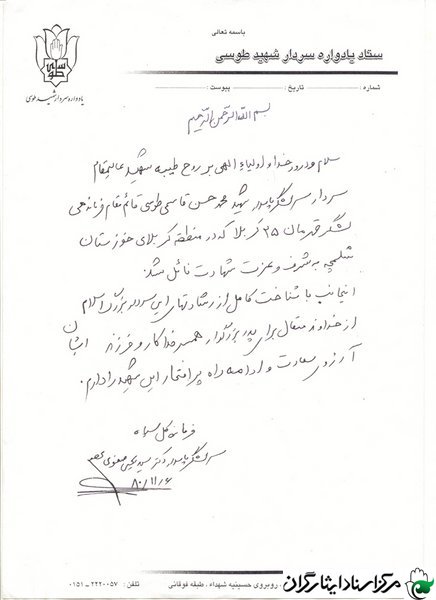 باسمه تعالی
ستاد یادواره سردار شهید طوسی
طوسی
یادواره سردار شهید طوسی
شماره : تاریخ : پیوست :
بسم الله الرحمن الرحیم
سلام و درود خدا و اولیاء الهی بر روح طیبه شهید عالیمقام
سردار سرلشگر پاسدار شهید محمد حسن قاسمی طوسی قائم مقام فرماندهی
لشگر قهرمان ۲۵ کربلا که در منطقه کربلای خوزستان
شلمچه به شرف و عزت شهادت نائل شد.
اینجانب با شناخت کامل از رشادتهای این سردار بزرگ اسلام
از خداوند متعال برای پدر بزرگوار همسر فداکار و فرزند ایشان
آرزوی سعادت و ادامه راه پر افتخار این شهید را دارم.
فرمانده کل سپاه
سرلشگر پاسدار دکتر سید یحیی صفوی
۸۰/۱۱/۶
روبروی حسینیه شهداء ، طبقه فوقانی تلفن : ۲۲۲۰۰۵۷ ـ ۰۱۵۱
مرکز اسناد ایثارگران